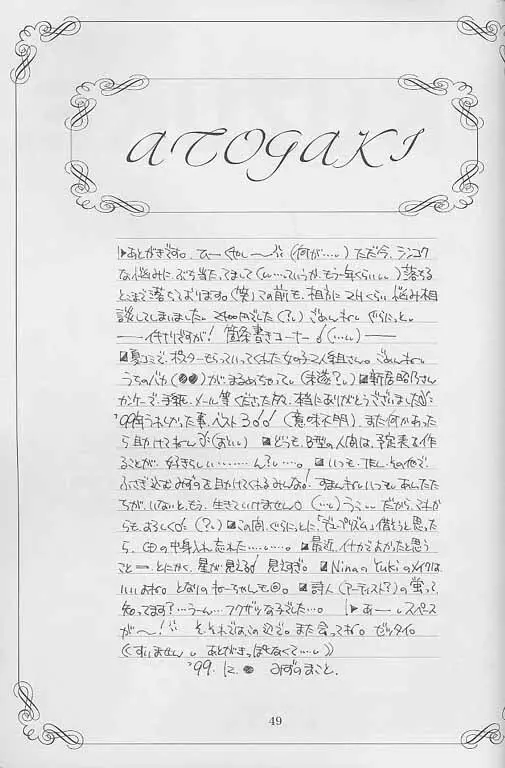 ATOGAKI
あとがきです。ひー くやしー (何が…) ただ今、シンコク
な悩みに、ぶち当たってまして (い…ていうか、もう一年くらい) 落ちる
とこまで落ちております。(笑) この前も、相方に 2Hくらい 悩み相
談してしまいました。2400円でした (?) ごめんねー ぐらにっと。
代わりですが! 箇条書きコーナー
夏コミで、ポスターもらっていってくれた女の子2人組さん。ごめんねー
うちのバカ (●●) がまるめちゃって (未遂?) 新居昭乃さん
かケーで、手紙、メール等くださた方、本当にありがとうございました
'99うれしかった事、ベスト3 (意味不明) また何かあった
ら助けてねーん (おい) どうも、B型の人間は、予定表を作
ることが、好きらしい……ん?…。 いつも、TEL、その他で、
ふさぎ込むみずのを助けてくれるみんな! すまんねー いつも。あんたた
ちが、いないと、もう、生きていけません。(…) うこ… だから、これか
らも、よろしく (?) この間、ぐらにっとに「デュープリズム」借そうと思った
ら、CDの中身入れ忘れた……。 最近、イナカでよかったと思う
こと = とにかく、星が見える! 見えすぎ。 NinaのYukiのメイクは、
いいよねー。となりのねーちゃんも◎。 詩人 (アーティスト?) の蛍って、
知ってます? …うーん… フクザツな子でした…。 あー スペース
が〜! そ、それではこの辺で。また会ってね。ゼッタイ。
((すいません あとがきっぽくなくて…))
'99. 12. ● みずのまこと.
49